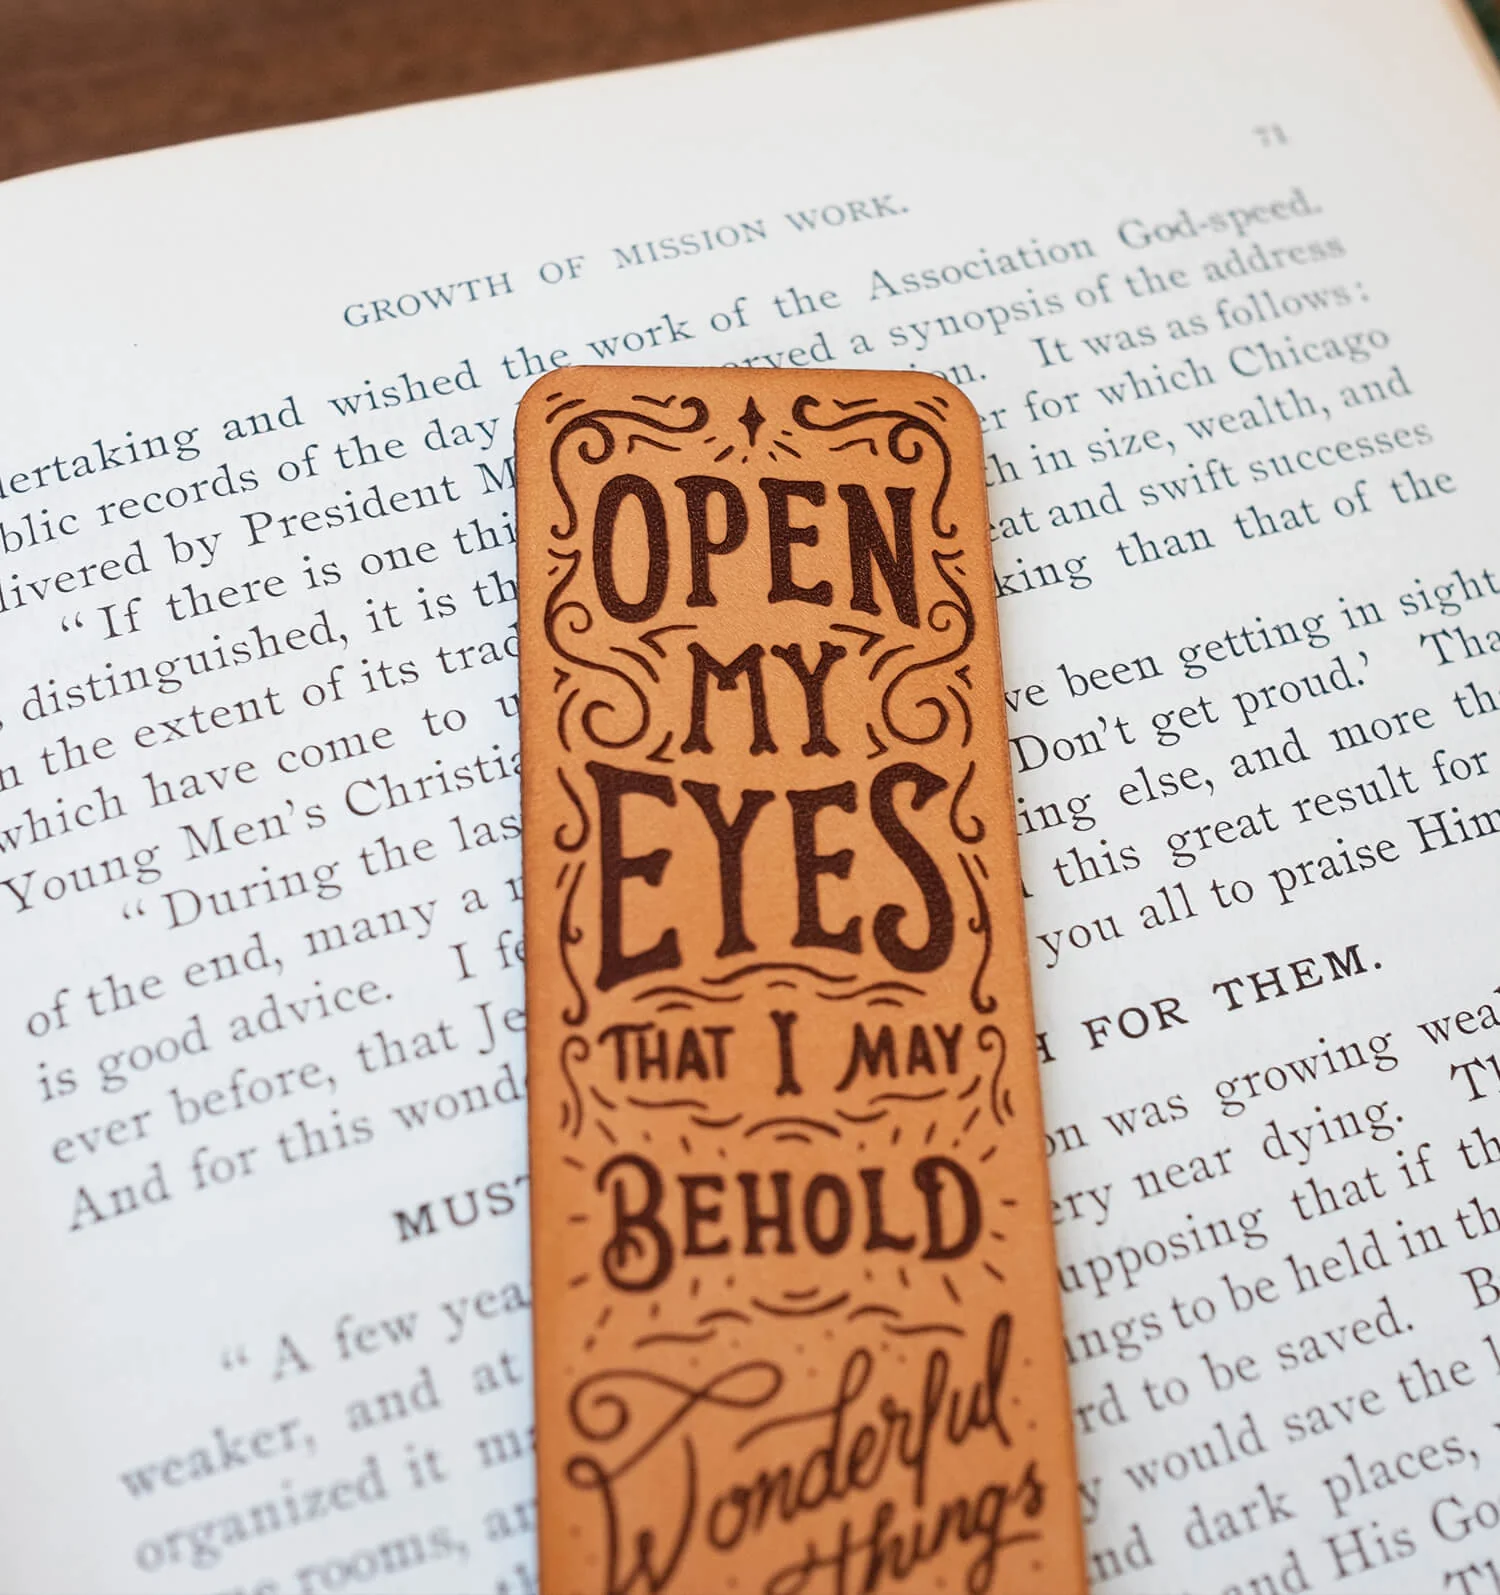 71
GROWTH OF MISSION WORK.
dertaking and wished the work of the Association God-speed.
blic records of the day erved a synopsis of the address
livered by President M on. It was as follows:
“If there is one thi er for which Chicago
, distinguished, it is th h in size, wealth, and
n the extent of its trad eat and swift successes
which have come to u king than that of the
Young Men’s Christia
“During the las ve been getting in sight
of the end, many a r Don’t get proud.’ Tha
is good advice. I fe ing else, and more th
ever before, that Je this great result for
And for this wond you all to praise Him
MUST H FOR THEM.
“A few yea on was growing wea
weaker, and at ery near dying. Th
organized it ma upposing that if th
rooms, an ings to be held in th
rd to be saved. B
y would save the l
nd dark places,
and His Go
OPEN
MY
EYES
THAT I MAY
BEHOLD
Wonderful
things